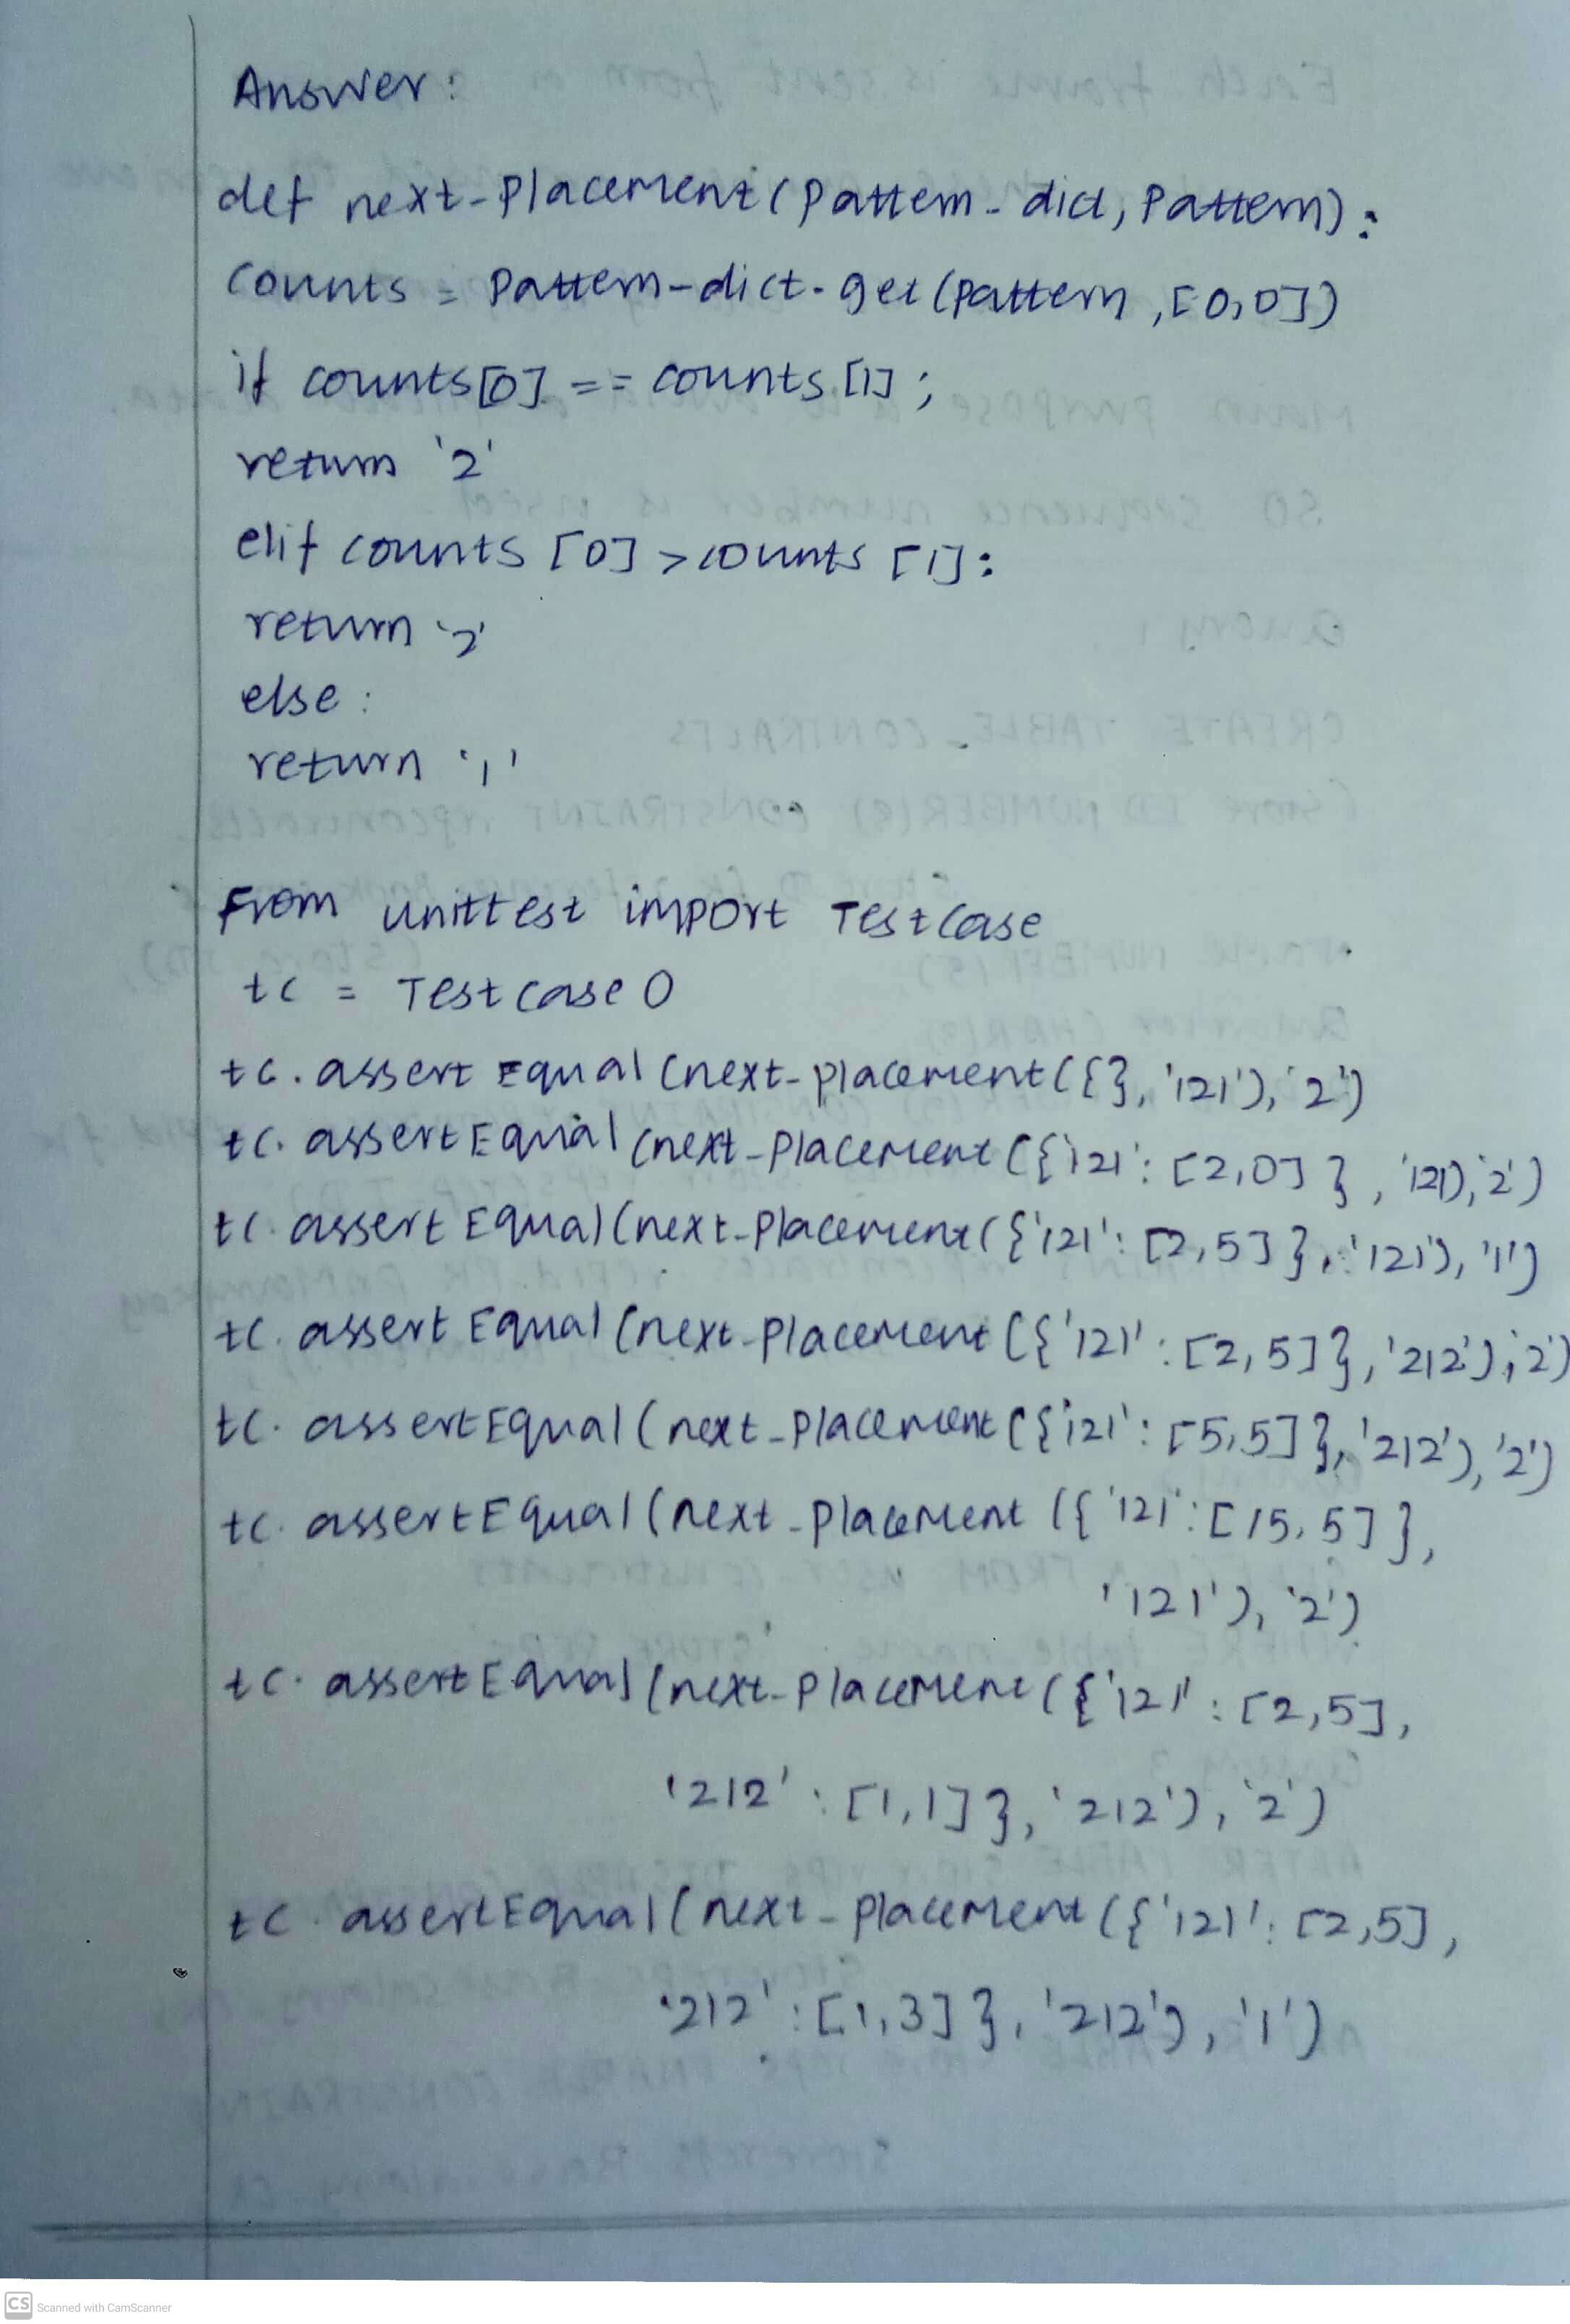 Answer:
def next-placement(pattern-dict, Pattern):
counts = pattern-dict.get(pattern,[0,0])
if counts[0] == counts[1];
return '2'
elif counts [0] > counts [1]:
return '2'
else:
return '1'
From unittest import Testcase
tc = Testcase()
tc.assertEqual(next-placement({}, '121'), '2')
tc.assertEqual(next-placement({'121': [2,0]}, '121), '2')
tc.assertEqual(next-placement({'121': [2,5]}, '121'), '1')
tc.assertEqual(next-placement({'121': [2,5]}, '212'), '2')
tc.assertEqual(next-placement({'121': [5,5]}, '212'), '2')
tc.assertEqual(next-placement({'121': [15,5]},
'121'), '2')
tc.assertEqual(next-placement({'121': [2,5],
'212': [1,1]}, '212'), '2')
tc.assertEqual(next-placement({'121': [2,5],
'212': [1,3]}, '212'), '1')
CS Scanned with CamScanner